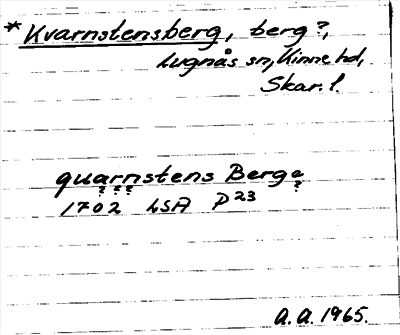 *Kvarnstensberg, berg?,
Lugnås sn, Kinne hd,
Skar. l.
quarnstens Berga
? ? ? ?
1702 LSA P23
A.A. 1965.